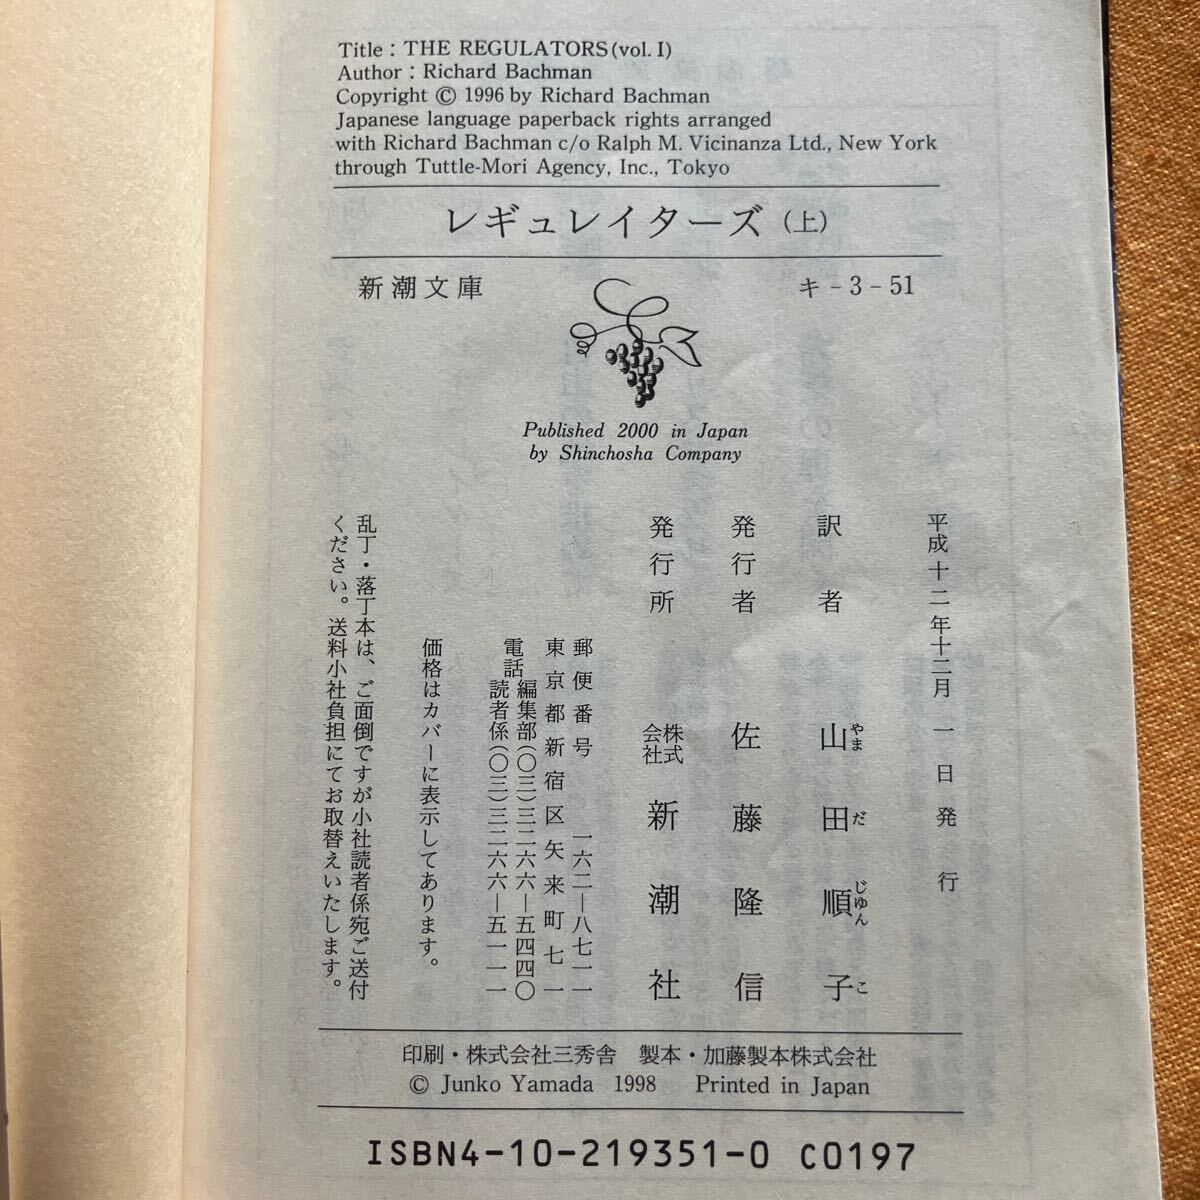 Title : THE REGULATORS (vol. I)
Author : Richard Bachman
Copyright © 1996 by Richard Bachman
Japanese language paperback rights arranged
with Richard Bachman c/o Ralph M. Vicinanza Ltd., New York
through Tuttle-Mori Agency, Inc., Tokyo
レギュレイターズ（上）
新潮文庫
キ - 3 - 51
Published 2000 in Japan
by Shinchosha Company
平成十二年十二月一日発行
訳者 山田順子
やまだじゅんこ
発行者 佐藤隆信
発行所 株式会社 新潮社
郵便番号 一六二―八七一一
東京都新宿区矢来町七一
電話 編集部(〇三)三二六六―五四四〇
読者係(〇三)三二六六―五一一一
価格はカバーに表示してあります。
乱丁・落丁本は、ご面倒ですが小社読者係宛ご送付
ください。送料小社負担にてお取替えいたします。
印刷・株式会社三秀舎 製本・加藤製本株式会社
© Junko Yamada 1998 Printed in Japan
ISBN4-10-219351-0 C0197